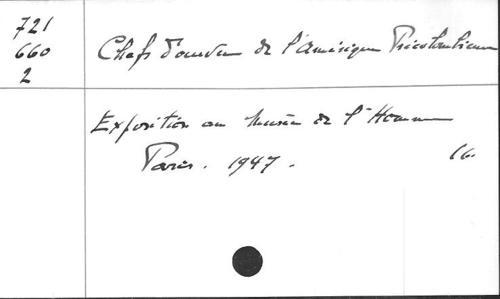 721
660
2
Chefs d'œuvre de l'Amérique Précolombienne
Exposition au Musée de l'Homme
Paris. 1947.
16.